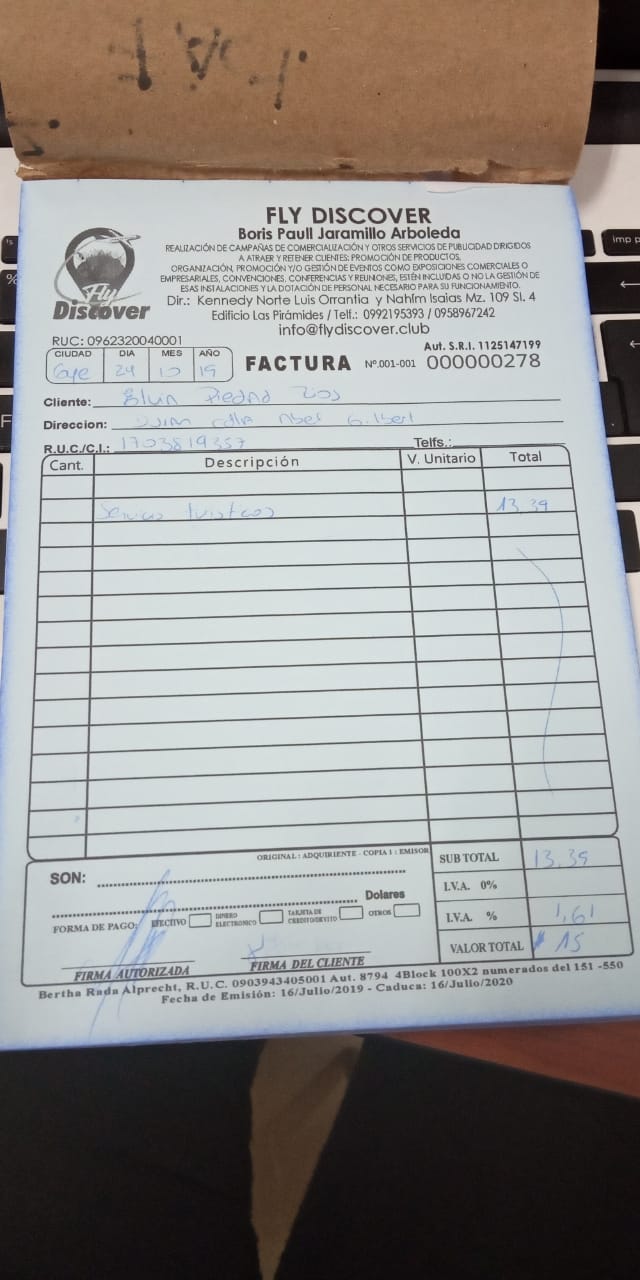 FLY DISCOVER
Boris Paull Jaramillo Arboleda
REALIZACIÓN DE CAMPAÑAS DE COMERCIALIZACIÓN Y OTROS SERVICIOS DE PUBLICIDAD DIRIGIDOS
A ATRAER Y RETENER CLIENTES: PROMOCIÓN DE PRODUCTOS,
ORGANIZACIÓN, PROMOCIÓN Y/O GESTIÓN DE EVENTOS COMO EXPOSICIONES COMERCIALES O
EMPRESARIALES, CONVENCIONES, CONFERENCIAS Y REUNIONES, ESTÉN INCLUIDAS O NO LA GESTIÓN DE
ESAS INSTALACIONES Y LA DOTACIÓN DE PERSONAL NECESARIO PARA SU FUNCIONAMIENTO.
Fly Discover
Dir.: Kennedy Norte Luis Orrantia y Nahím Isaias Mz. 109 Sl. 4
Edificio Las Pirámides / Telf.: 0992195393 / 0958967242
info@flydiscover.club
RUC: 0962320040001
Aut. S.R.I. 1125147199
CIUDAD DIA MES AÑO
Gye 24 10 19
FACTURA Nº.001-001 000000278
Cliente: Piedad
Direccion:
R.U.C./C.I.: 1703819357 Telfs.:
Cant. Descripción V. Unitario Total
Servicios turisticos 13,39
ORIGINAL: ADQUIRIENTE - COPIA 1: EMISOR
SON:
Dolares
FORMA DE PAGO: EFECTIVO DINERO ELECTRONICO TARJETA DE CREDITO/DEVITO OTROS
SUB TOTAL 13,39
I.V.A. 0%
I.V.A. % 1,61
VALOR TOTAL $ 15
FIRMA AUTORIZADA FIRMA DEL CLIENTE
Bertha Rada Alprecht, R.U.C. 0903943405001 Aut. 8794 4Block 100X2 numerados del 151 -550
Fecha de Emisión: 16/Julio/2019 - Caduca: 16/Julio/2020
imp p